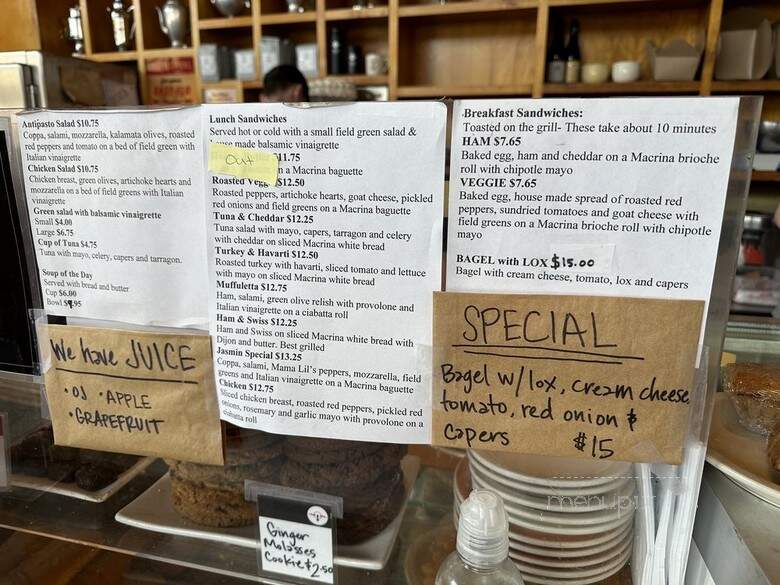 Antipasto Salad $10.75
Coppa, salami, mozzarella, kalamata olives, roasted
red peppers and tomato on a bed of field green with
Italian vinaigrette
Chicken Salad $10.75
Chicken breast, green olives, artichoke hearts and
mozzarella on a bed of field greens with Italian
vinaigrette
Green salad with balsamic vinaigrette
Small $4.00
Large $6.75
Cup of Tuna $4.75
Tuna with mayo, celery, capers and tarragon.
Soup of the Day
Served with bread and butter
Cup $6.00
Bowl $9.95
We have JUICE
• OJ • APPLE
• GRAPEFRUIT
Lunch Sandwiches
Served hot or cold with a small field green salad &
house made balsamic vinaigrette
Out
$11.75
on a Macrina baguette
Roasted Vegg $12.50
Roasted peppers, artichoke hearts, goat cheese, pickled
red onions and field greens on a Macrina baguette
Tuna & Cheddar $12.25
Tuna salad with mayo, capers, tarragon and celery
with cheddar on sliced Macrina white bread
Turkey & Havarti $12.50
Roasted turkey with havarti, sliced tomato and lettuce
with mayo on sliced Macrina white bread
Muffuletta $12.75
Ham, salami, green olive relish with provolone and
Italian vinaigrette on a ciabatta roll
Ham & Swiss $12.25
Ham and Swiss on sliced Macrina white bread with
Dijon and butter. Best grilled
Jasmin Special $13.25
Coppa, salami, Mama Lil's peppers, mozzarella, field
greens and Italian vinaigrette on a Macrina baguette
Chicken $12.75
Sliced chicken breast, roasted red peppers, pickled red
onions, rosemary and garlic mayo with provolone on a
ciabatta roll
Breakfast Sandwiches:
Toasted on the grill- These take about 10 minutes
HAM $7.65
Baked egg, ham and cheddar on a Macrina brioche
roll with chipotle mayo
VEGGIE $7.65
Baked egg, house made spread of roasted red
peppers, sundried tomatoes and goat cheese with
field greens on a Macrina brioche roll with chipotle
mayo
BAGEL with LOX $15.00
Bagel with cream cheese, tomato, lox and capers
SPECIAL
Bagel w/lox, cream cheese,
tomato, red onion &
capers $15
Ginger
Molasses
Cookie $2.50
menupix